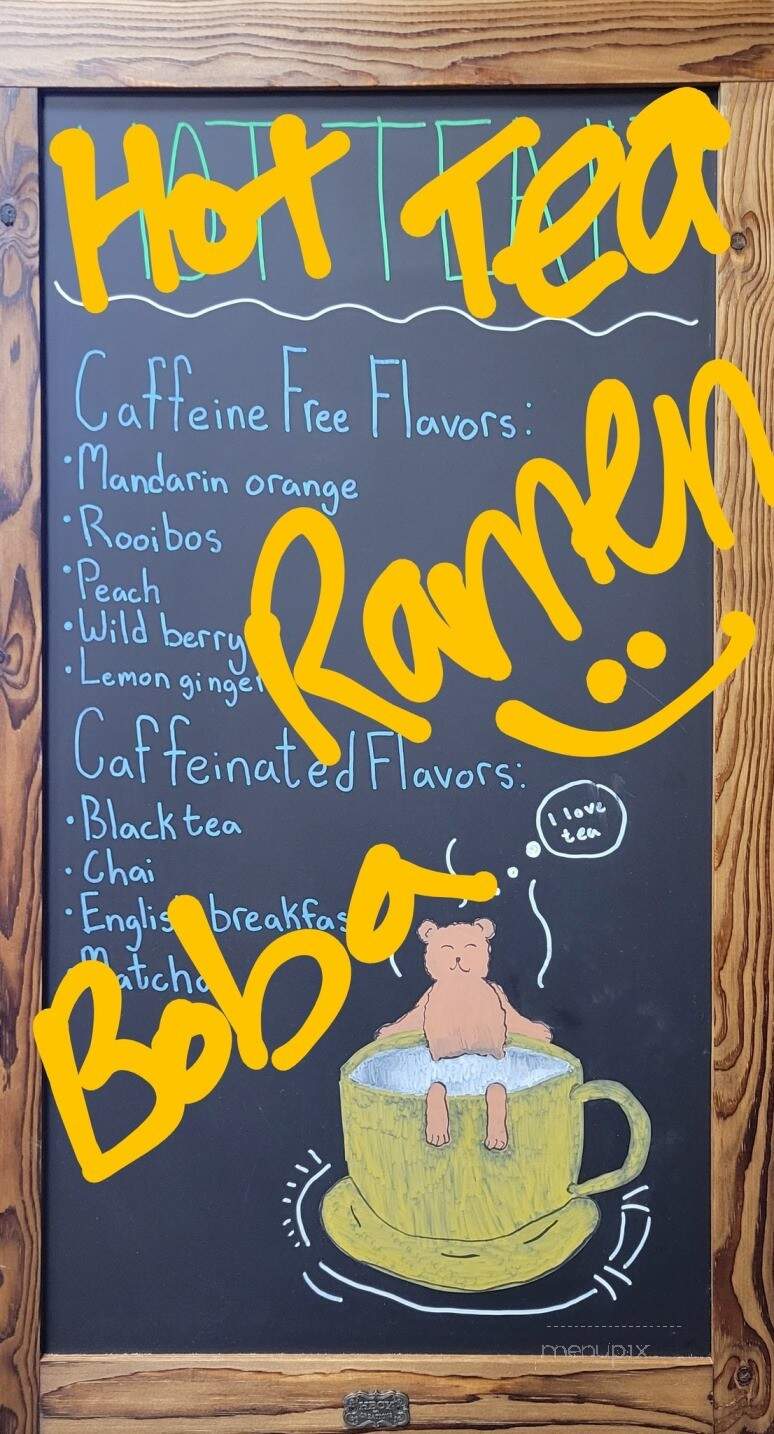 HOT TEA!!
Hot Tea
Caffeine Free Flavors:
• Mandarin orange
• Rooibos
• Peach
• Wild berry
• Lemon ginger
Ramen
Caffeinated Flavors:
• Black tea
• Chai
• English breakfas
Matcha
Boba
I love
tea
menupix